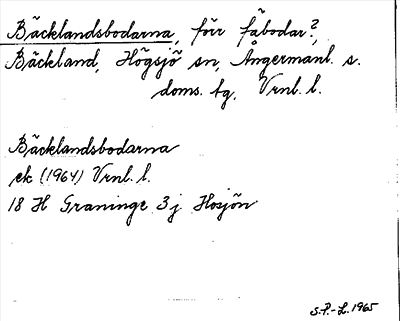 Bäcklandsbodarna, förr fäbodar?,
Bäckland, Högsjö sn, Ångermanl. s.
doms. tg, Vrnl. l.
Bäcklandsbodarna
ek (1964) Vrnl. l.
18 H Graninge 3 j Hosjön
S.P.-L. 1965